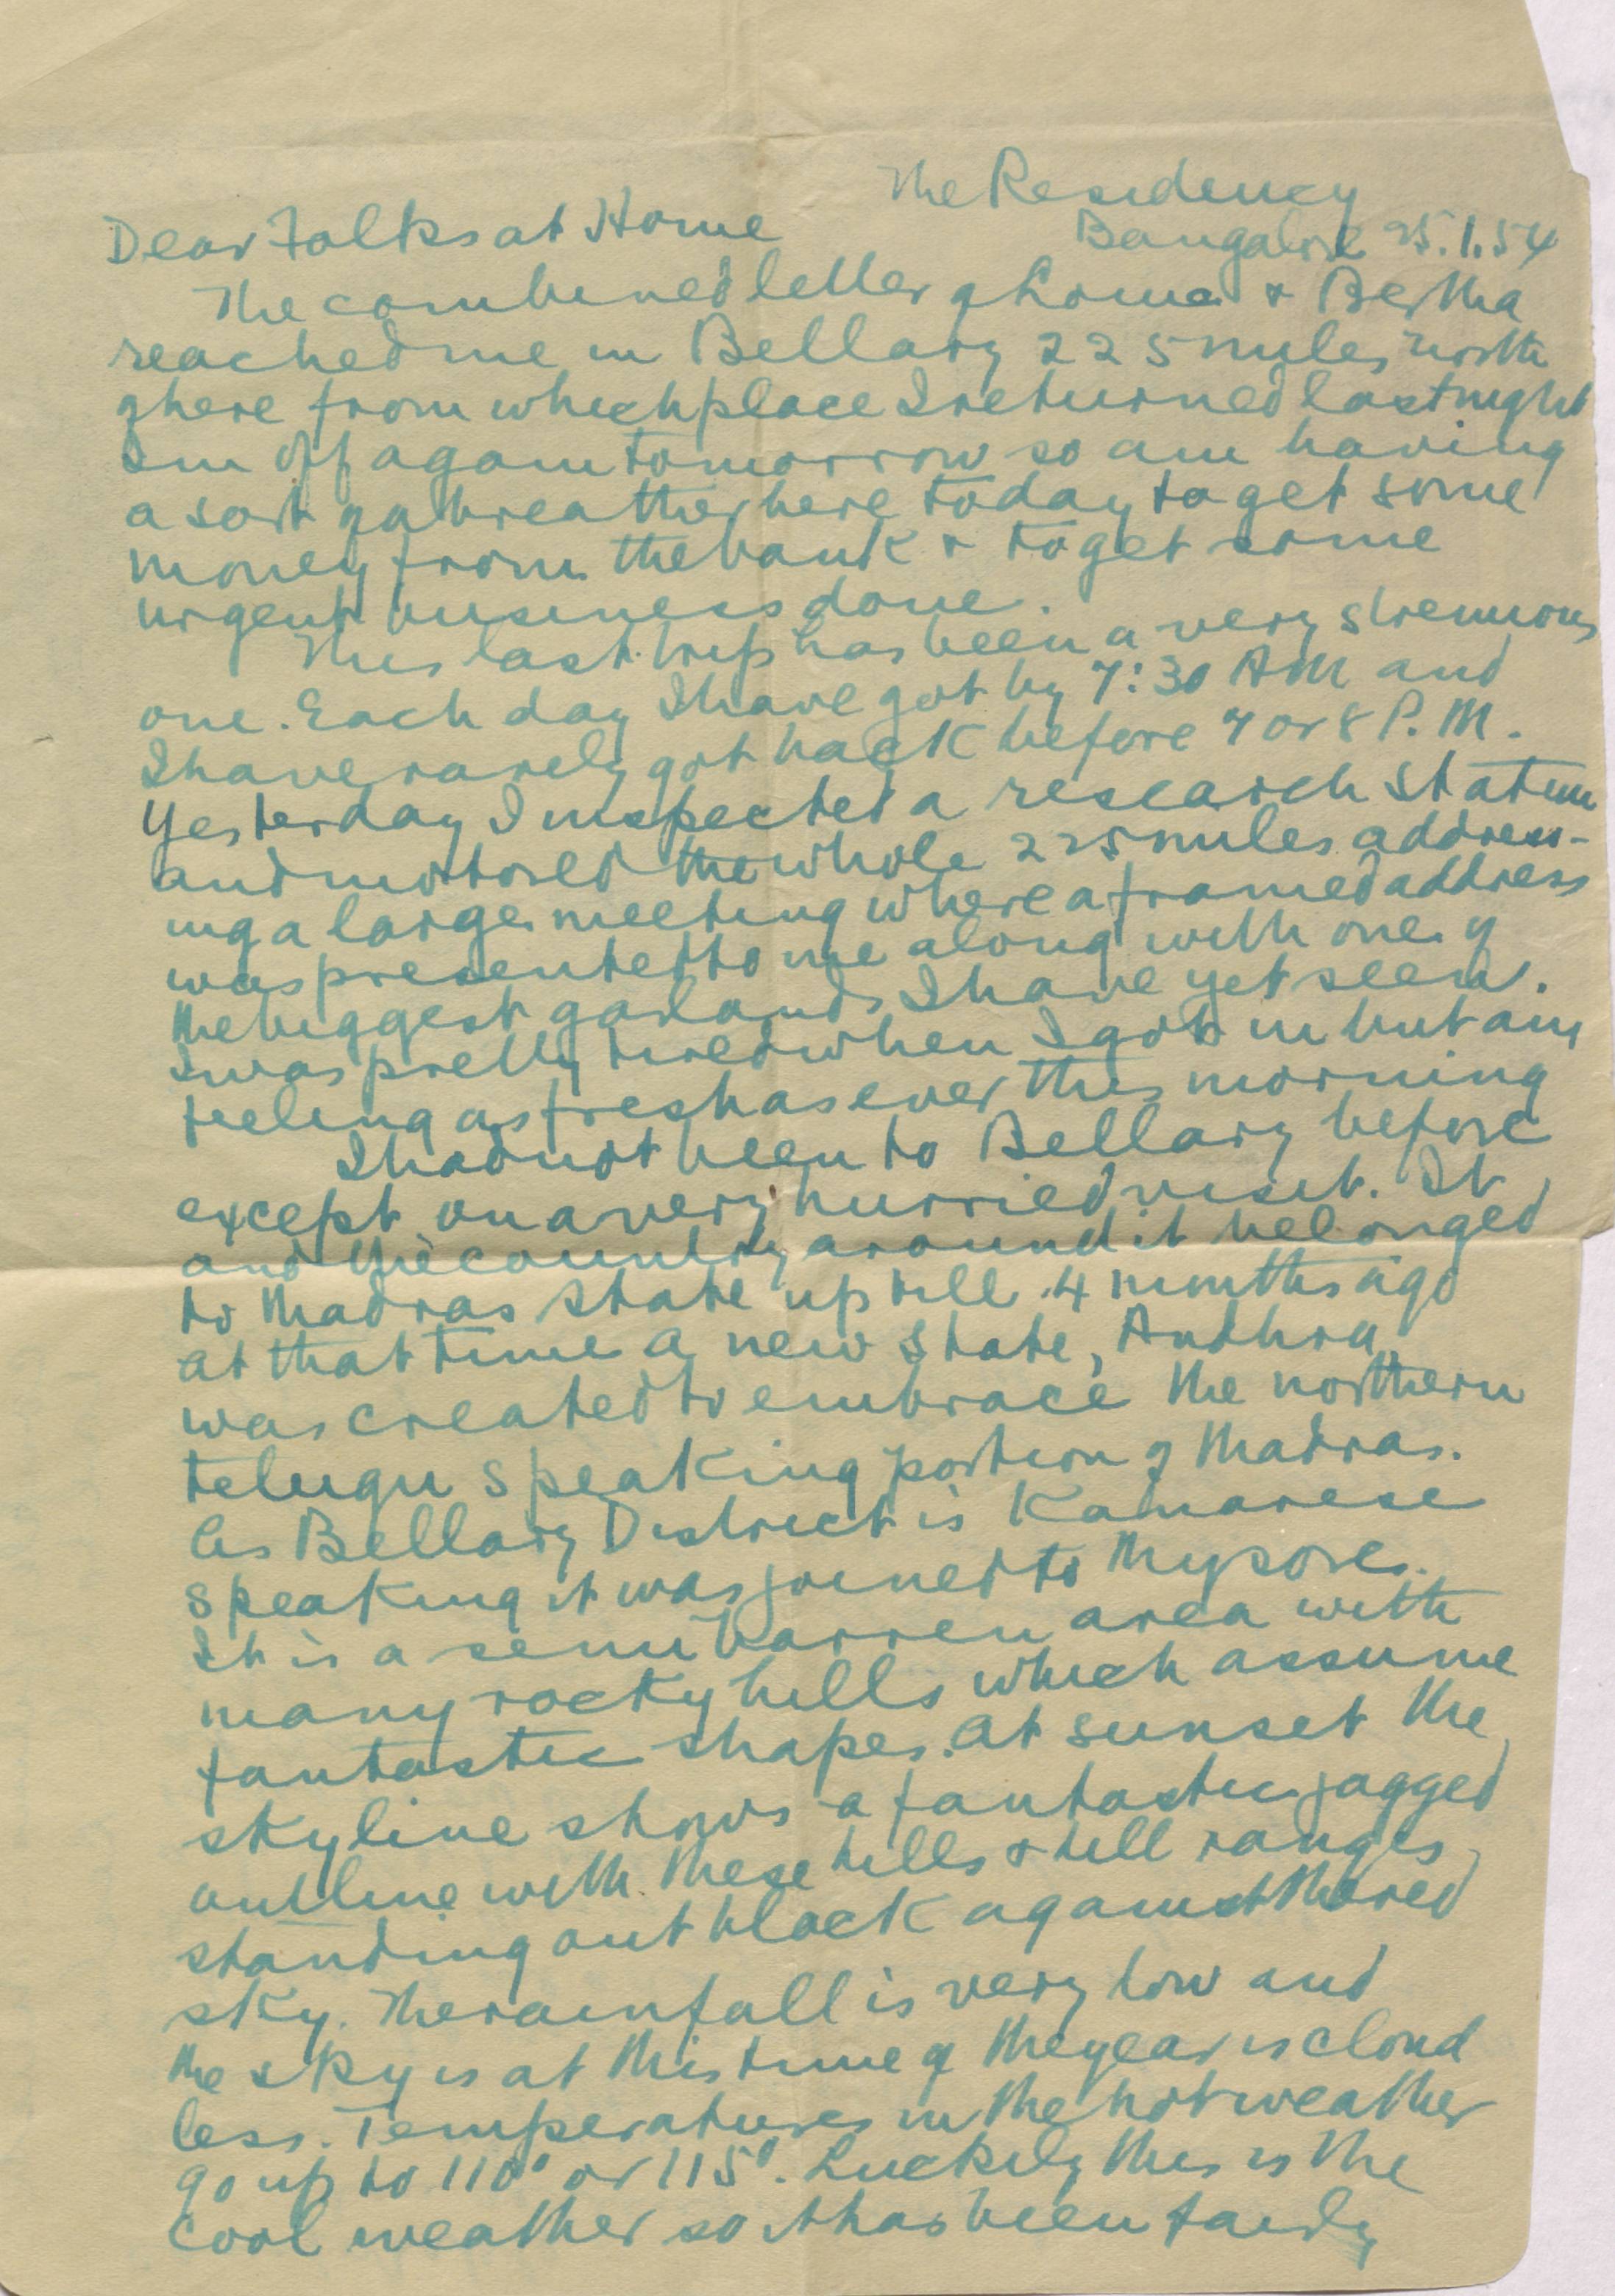 The Residency
Dear Folks at Home
Bangalore 25.1.54
The combined letter of Lorna & Bertha
reached me in Bellary 225 miles north
of here from which place I returned last night
I'm off again tomorrow so am having
a sort of a breather here today to get some
money from the bank & to get some
urgent business done.
This last trip has been a very strenuous
one. Each day I have got by 7:30 AM and
I have rarely got back before 7 or 8 P.M.
Yesterday I inspected a research station
and motored the whole 225 miles address-
ing a large meeting where a framed address
was presented to me along with one of
the biggest garlands I have yet seen.
I was pretty tired when I got in but am
feeling as fresh as ever this morning
I had not been to Bellary before
except on a very hurried visit. It
and the country around it belonged
to Madras State up till 4 months ago
at that time a new state, Andhra,
was created to embrace the northern
telugu speaking portion of Madras.
As Bellary District is Kanarese
speaking it was joined to Mysore.
It is a semi barren area with
many rocky hills which assume
fantastic shapes. At sunset the
skyline shows a fantastic jagged
outline with these hills & hill ranges
standing out black against the red
sky. The rainfall is very low and
the sky is at this time of the year is cloud
less. Temperatures in the hot weather
go up to 110° or 115°. Luckily this is the
cool weather so it has been fairly